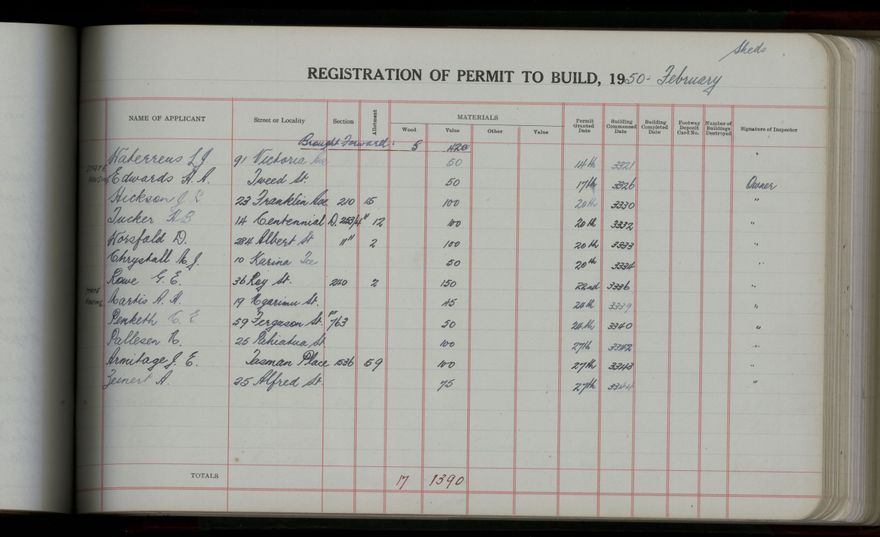 Sheds
REGISTRATION OF PERMIT TO BUILD, 1950 - February
NAME OF APPLICANT Street or Locality Section Allotment MATERIALS Permit Granted Date Building Commenced Date Building Completed Date Footway Deposit Card No. Number of Buildings Destroyed Signature of Inspector
Wood Value Other Value
Brought Forward: 5 420
91 Victoria Ave 50 14th 3321 "
STATE HOUSING Edwards A. A. Tweed St. 50 17th 3326 Owner
Hickson J. R. 23 Franklin Ave 210 15 100 20th 3330 "
Tucker K B 14 Centennial D. 12 100 20th 3332 "
Worsfald D. 284 Albert St "" 2 100 20th 3333 "
Chrystall C. J. 10 Karina Tce 50 20th 3334 "
Rowe G. E. 36 Roy St. 240 2 150 22nd 3336 "
STATE HOUSING A. A. 19 Ngarimu St. 45 24th 3339 "
Penketh C. E 59 Ferguson St. 763 50 24th 3340 "
Pallesen C. 25 Pahiatua St 100 27th 3342 "
Armitage J. E. Tasman Place 1536 59 100 27th 3343 "
A. 25 Alfred St. 75 27th 3344 "
TOTALS 17 1390